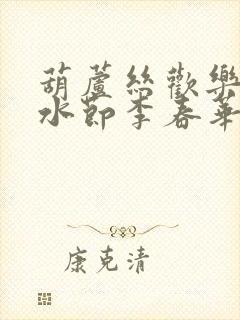 葫蘆絲歡樂
水節李春華
康克清